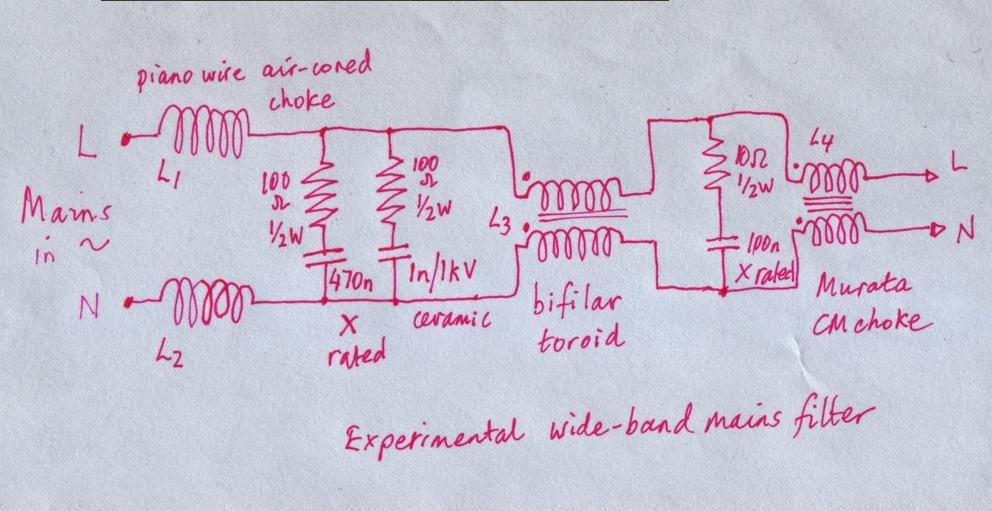 piano wire air-cored
choke
L
L1
Mains
in ~
N
L2
100
Ω
½W
470n
X
rated
100
Ω
½W
1n/1kV
ceramic
L3
bifilar
toroid
10Ω
½W
100n
X rated
L4
L
N
Murata
CM choke
Experimental wide-band mains filter